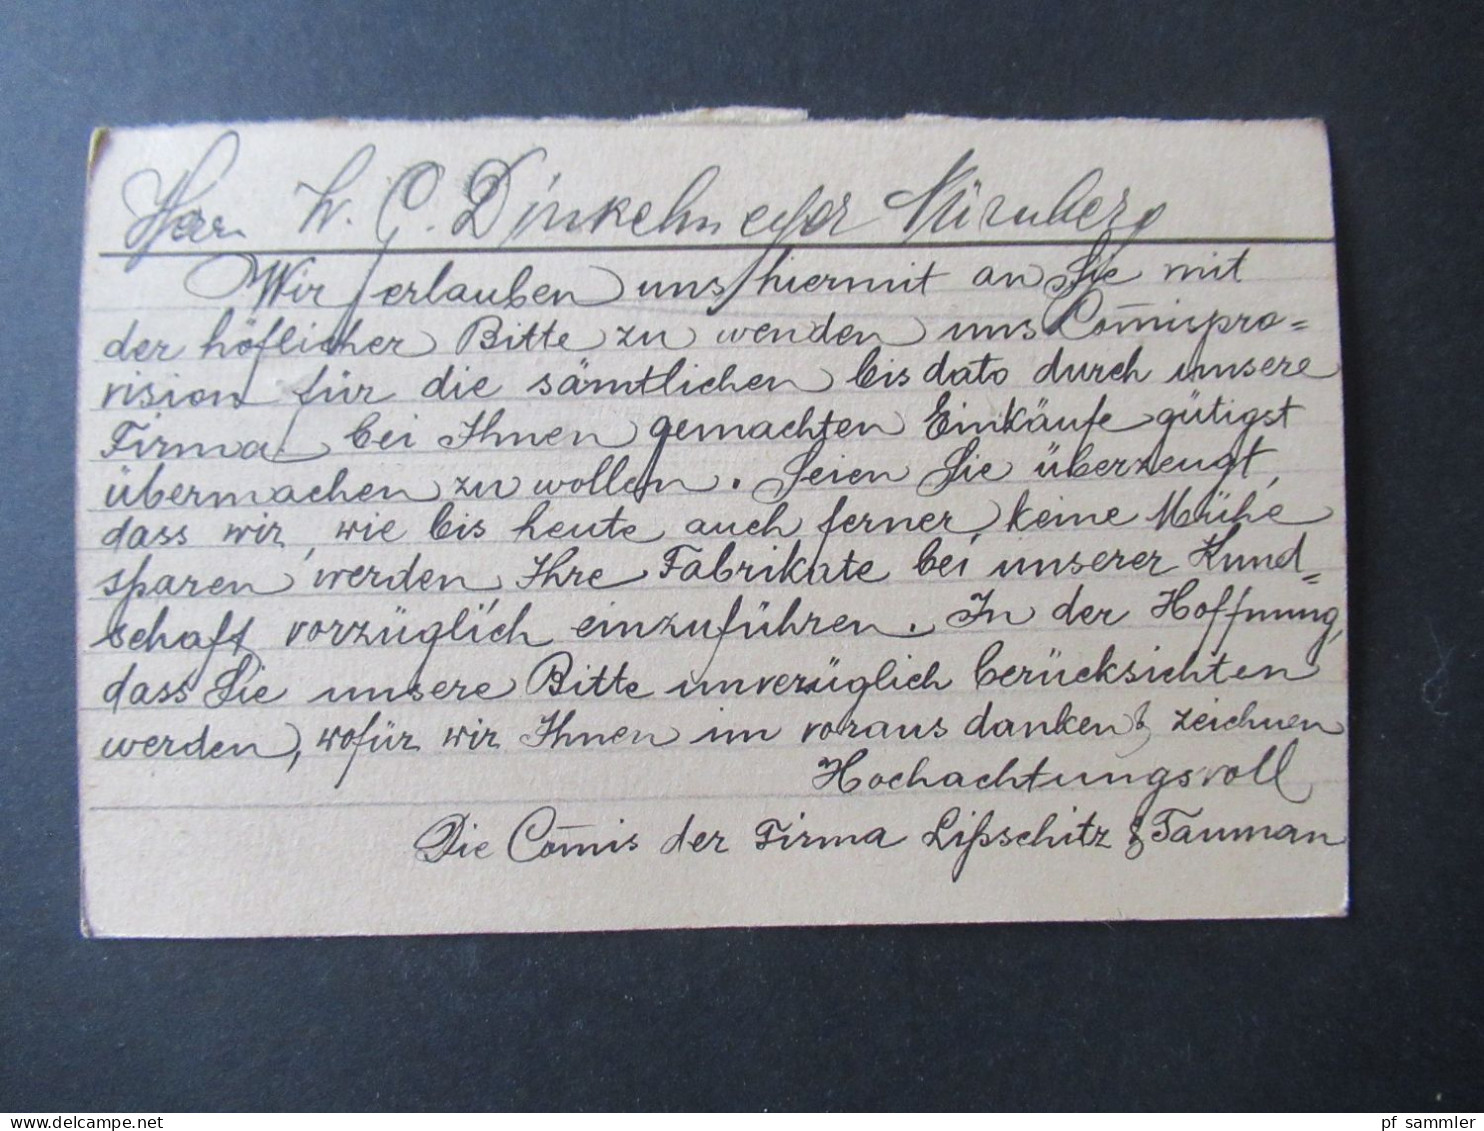 Herrn L. C. Dinkelmeyer Nürnberg
Wir erlauben uns hiermit an Sie mit
der höflicher Bitte zu wenden uns Com̅ispro=
vision für die sämtlichen bis dato durch unsere
Firma bei Ihnen gemachten Einkäufe gütigst
übermachen zu wollen. Seien Sie überzeugt,
dass wir, wie bis heute auch ferner, keine Mühe
sparen werden, Ihre Fabrikate bei unserer Kund=
schaft vorzüglich einzuführen. In der Hoffnung,
dass Sie unsere Bitte unverzüglich berücksichten
werden, wofür wir Ihnen im voraus danken & zeichnen
Hochachtungsvoll
Die Com̅is der Firma Lißschitz & Tauman
pf_sammler